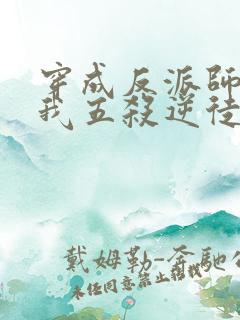 穿成反派師
我五殺逆徒
戴姆勒-奔馳公
未经同意禁止转载